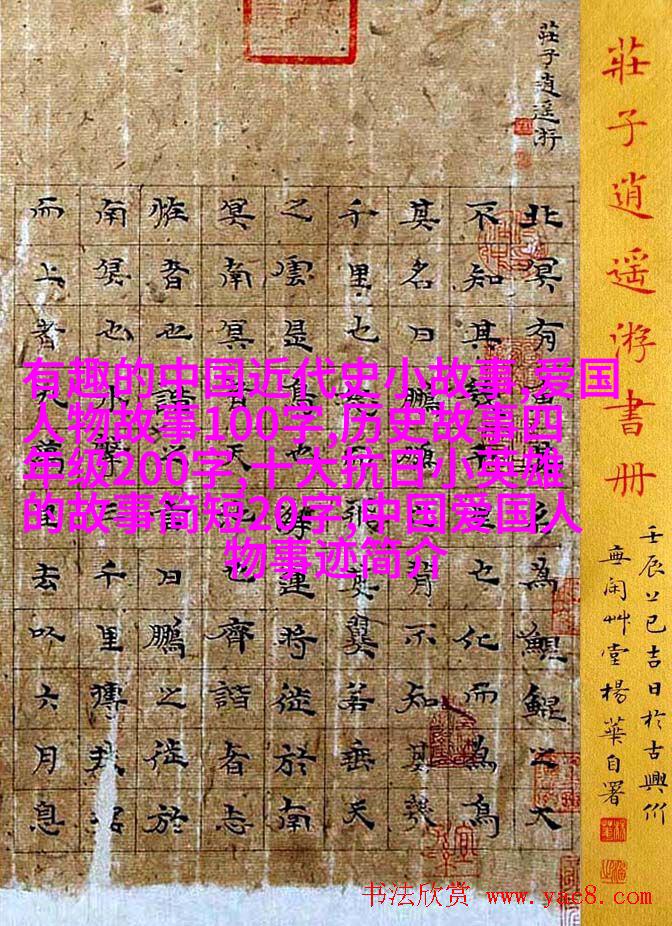 莊子逍遙游書冊
壬辰上巳吉日於古興州
無闲艸堂楊華自署
莊子逍遙游
北冥有魚其名為鯤鯤之大
不知其幾千里也化而為鳥
其名曰鵬鵬之背不知其幾
千里也怒而飛其翼若垂天
之雲是鳥也海運將徙於南
冥南冥者天池也齊諧者志
恠者也諧之言曰鵬之徙於
南冥也水擊三千里摶扶搖
而上者九萬里去以六月息
有趣的中国近代史小故事,爱国
人物故事100字,历史故事四
年级200字,十大抗日小英雄
的故事简短20字,中国爱国人
物事迹简介
书法欣赏 www.yac8.com